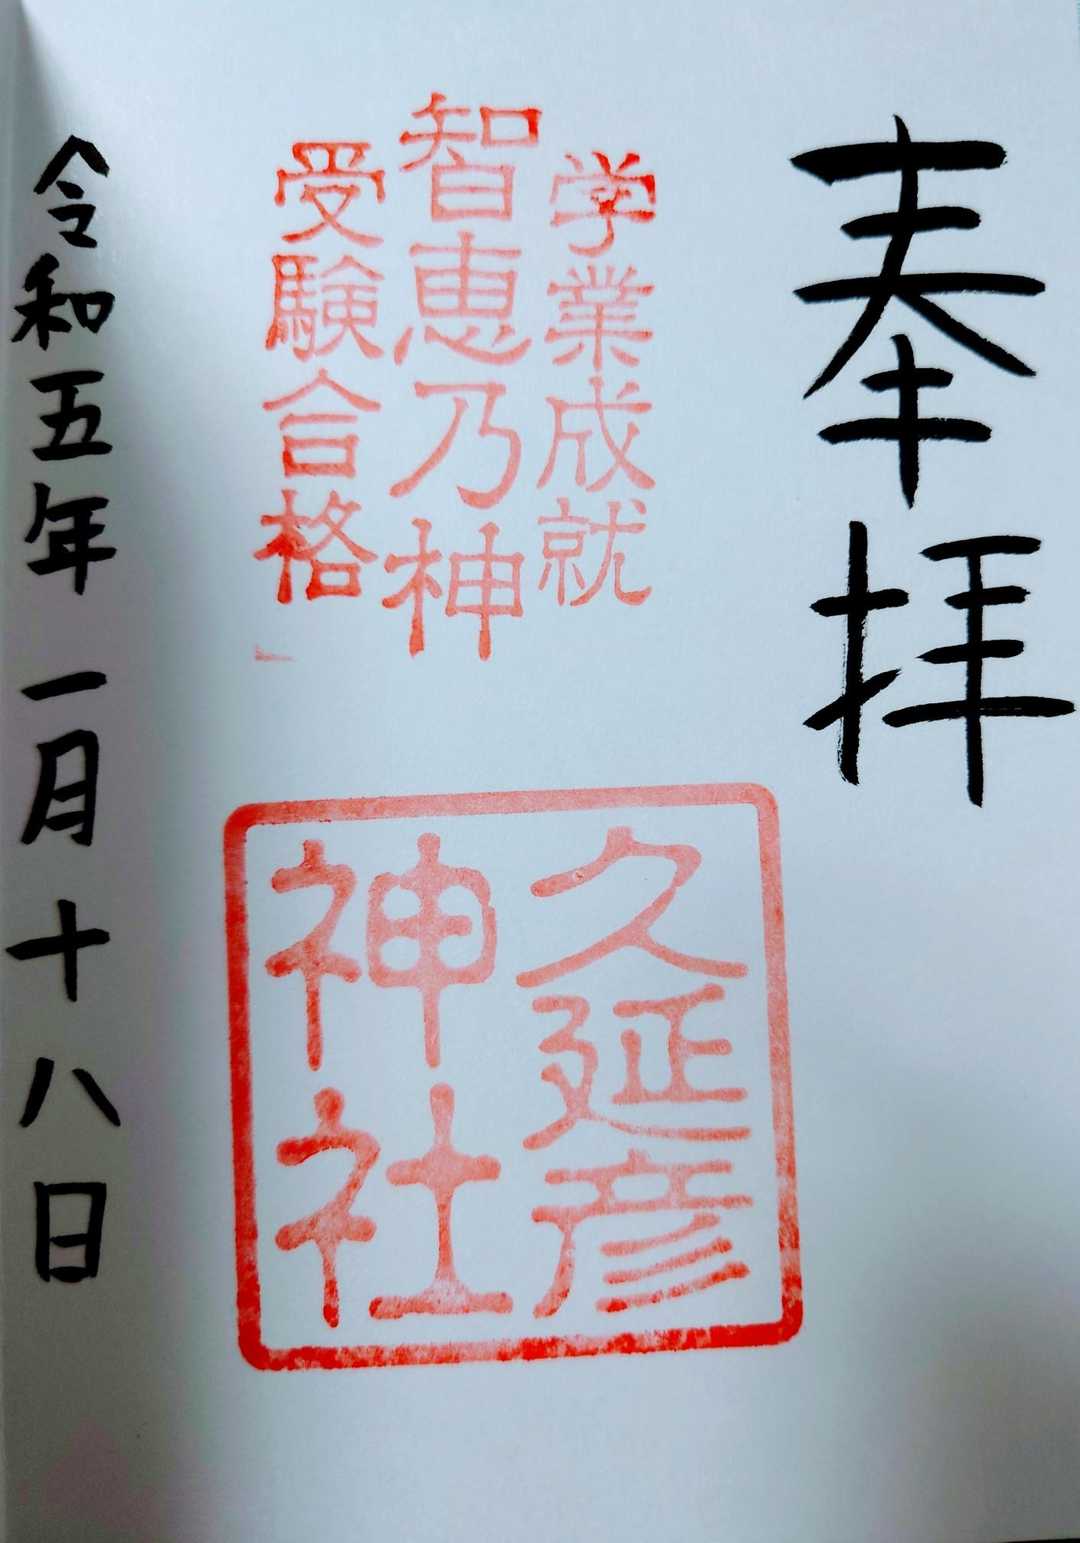 奉拝
学業成就
智恵乃神
受験合格
久延彦
神社
令和五年一月十八日